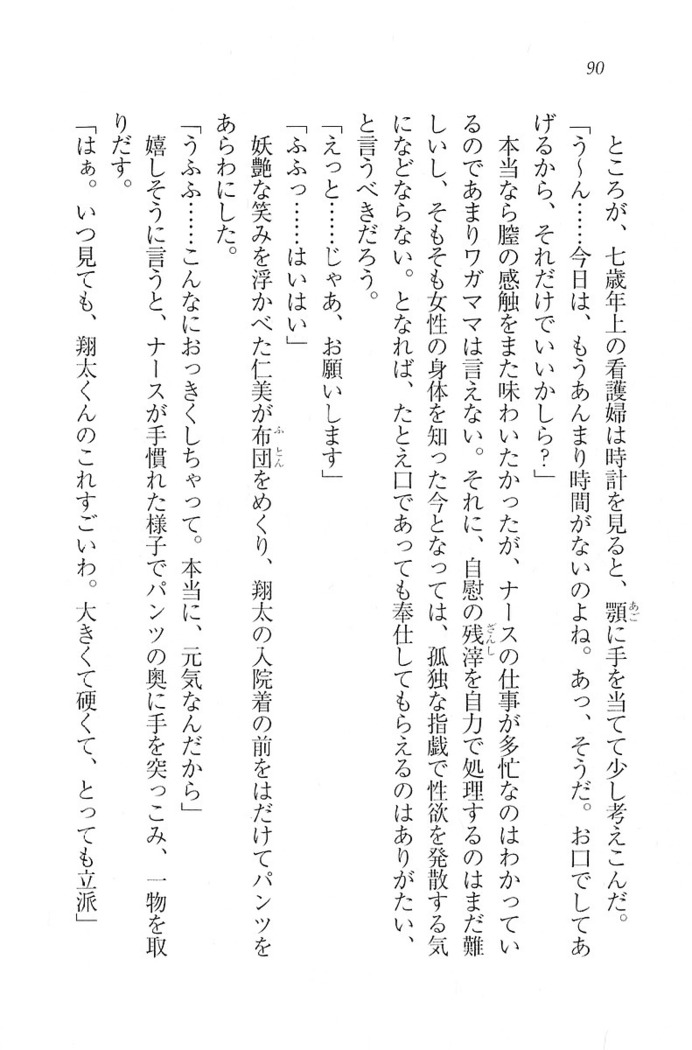 90
ところが、七歳年上の看護婦は時計を見ると、顎に手を当てて少し考えこんだ。
「う～ん……今日は、もうあんまり時間がないのよね。あっ、そうだ。お口でしてあ
げるから、それだけでいいかしら?」
本当なら膣の感触をまた味わいたかったが、ナースの仕事が多忙なのはわかってい
るのであまりワガママは言えない。それに、自慰の残滓を自力で処理するのはまだ難
しいし、そもそも女性の身体を知った今となっては、孤独な指戯で性欲を発散する気
になどならない。となれば、たとえ口であっても奉仕してもらえるのはありがたい、
と言うべきだろう。
「えっと……じゃあ、お願いします」
「ふふっ……はいはい」
妖艶な笑みを浮かべた仁美が布団をめくり、翔太の入院着の前をはだけてパンツを
あらわにした。
「うふふ……こんなにおっきくしちゃって。本当に、元気なんだから」
嬉しそうに言うと、ナースが手慣れた様子でパンツの奥に手を突っこみ、一物を取
りだす。
「はぁ。いつ見ても、翔太くんのこれすごいわ。大きくて硬くて、とっても立派」